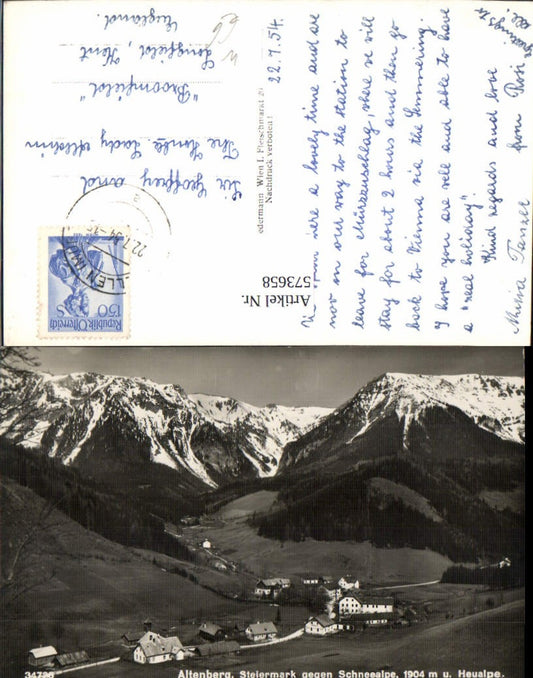 22.7.54.
We are here a lovely time and are
now on our way to the station to
leave for Mürzzuschlag, where we will
stay for about 2 hours and then go
back to Vienna via the Semmering.
I hope you are well and able to have
a "real holiday"!
Kind regards and love
from Rosi
greetings to
all!
Sir Geoffrey and
The Honble Lady
"Broomfield"
Kent
England.
edermann Wien I. Fleischmarkt 20
Nachdruck verboten!
Artikel Nr.
573658
1'50 S
Republik Österreich
34728 Altenberg, Steiermark gegen Schneealpe, 1904 m u. Heualpe.